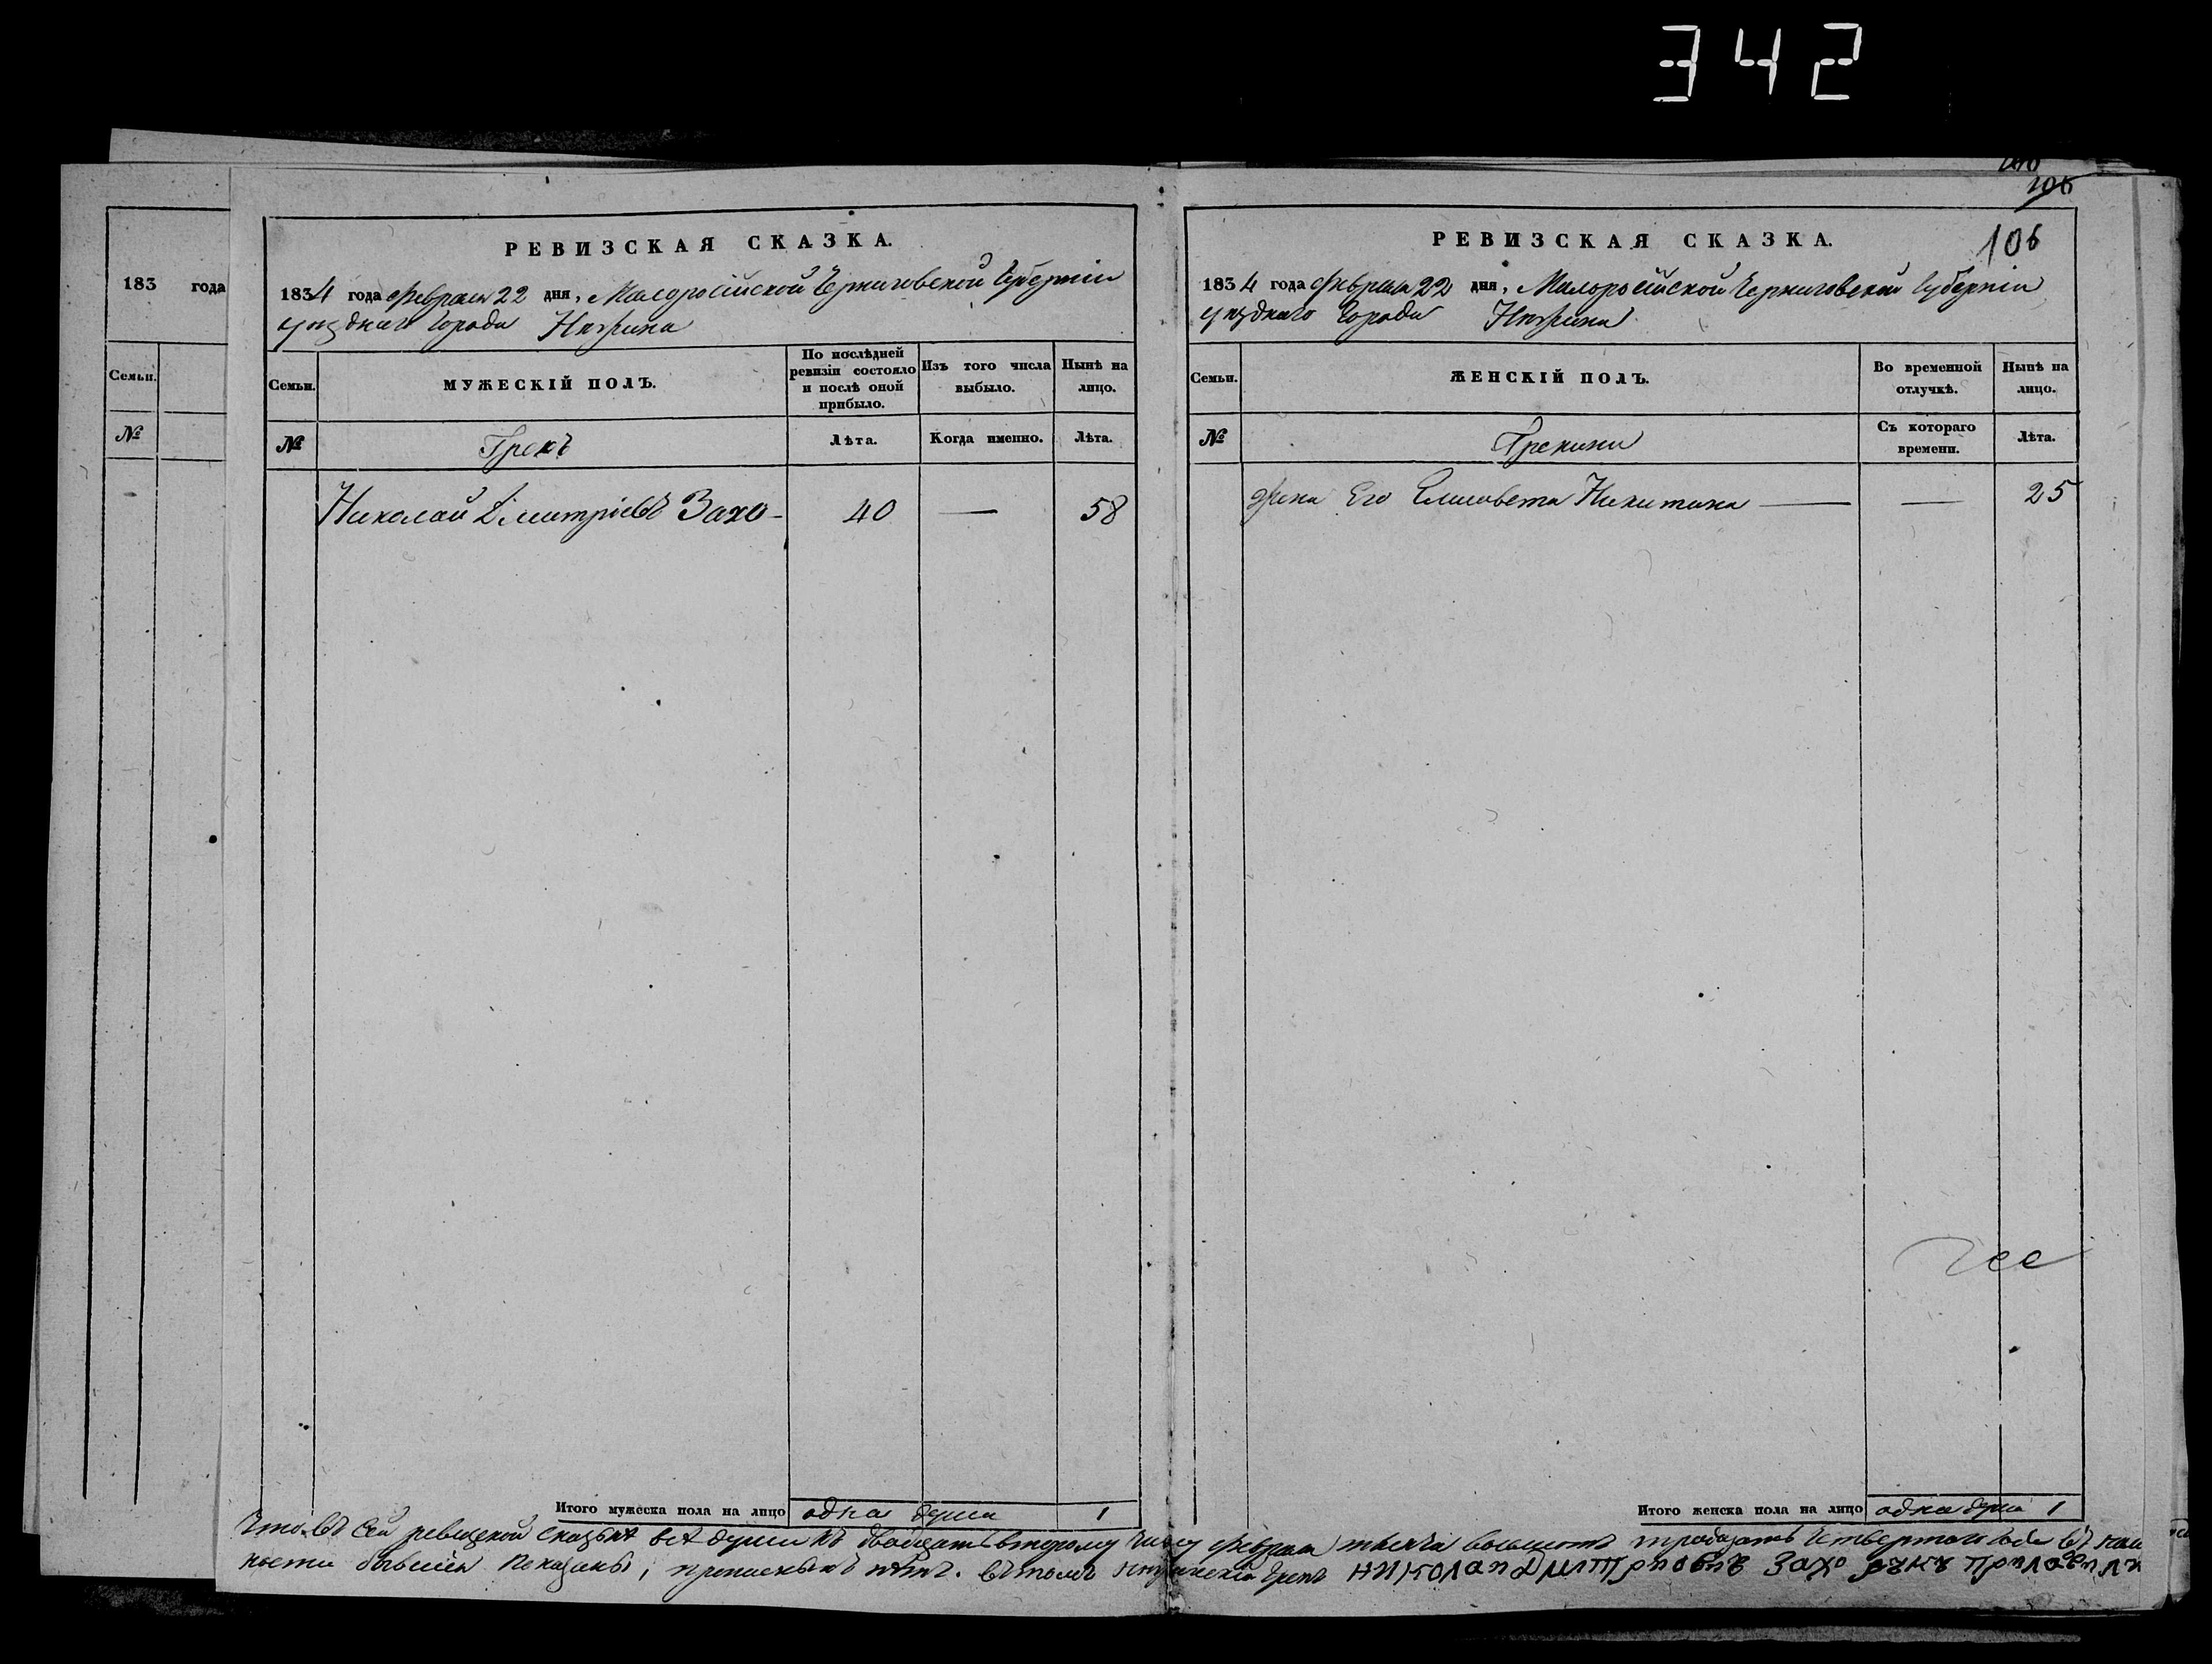 342
106
106
183 года
Семьи.
№
РЕВИЗСКАЯ СКАЗКА.
1834 года Февраля 22 дня, Малоросійской Черниговской Губерніи
уѣзднаго города Нѣжина
Семьи.
МУЖЕСКІЙ ПОЛЪ.
По послѣдней ревизіи состояло и послѣ оной прибыло.
Изъ того числа выбыло.
Нынѣ на лицо.
№
Грекъ
Лѣта.
Когда именно.
Лѣта.
Николай Дмитріевъ Захо- 40 — 58
Итого мужеска пола на лицо одна душа 1
РЕВИЗСКАЯ СКАЗКА.
1834 года Февраля 22 дня, Малоросійской Черниговской Губерніи
уѣзднаго города Нѣжина
Семьи.
ЖЕНСКІЙ ПОЛЪ.
Во временной отлучкѣ.
Нынѣ на лицо.
№
Грекини
Съ котораго времени.
Лѣта.
жена Его Елисовета Никитина — — 25
Итого женска пола на лицо одна душа 1
Что въ сей ревизской сказкѣ всѣ души къ двадцать второму числу февраля тысяча восьмсотъ тридцать четвертого года въ нали
ности бывшія показаны, прописныхъ нѣтъ. въ томъ нѣжинскій Грекъ николаи Дмитриовъ Захо руку приложилъ